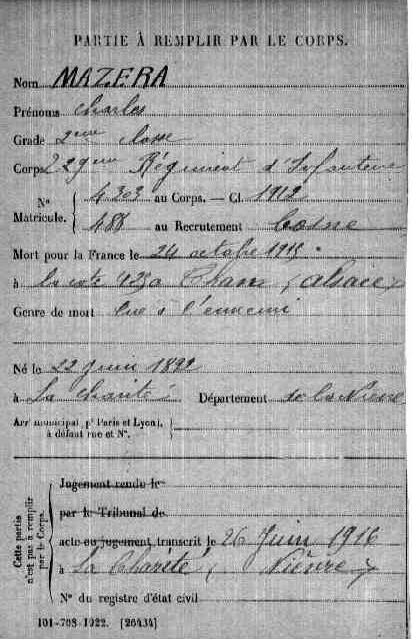 PARTIE À REMPLIR PAR LE CORPS.
Nom MAZERA
Prénoms Charles
Grade 2eme classe
Corps 229eme Régiment d'Infanterie
N° Matricule. 4303 au Corps. — Cl. 1912
488 au Recrutement Cosne
Mort pour la France le 24 octobre 1915
à la cote 425 à Thann (Alsace)
Genre de mort tué à l'ennemi
Né le 22 Juin 1892
à La Charité Département de la Nièvre
Arrt municipal (pr Paris et Lyon), à défaut rue et N°.
Cette partie n'est pas à remplir par le Corps.
Jugement rendu le
par le Tribunal de
acte ou jugement transcrit le 26 Juin 1916
à La Charité (Nièvre)
N° du registre d'état civil
101-708-1922. [26434]